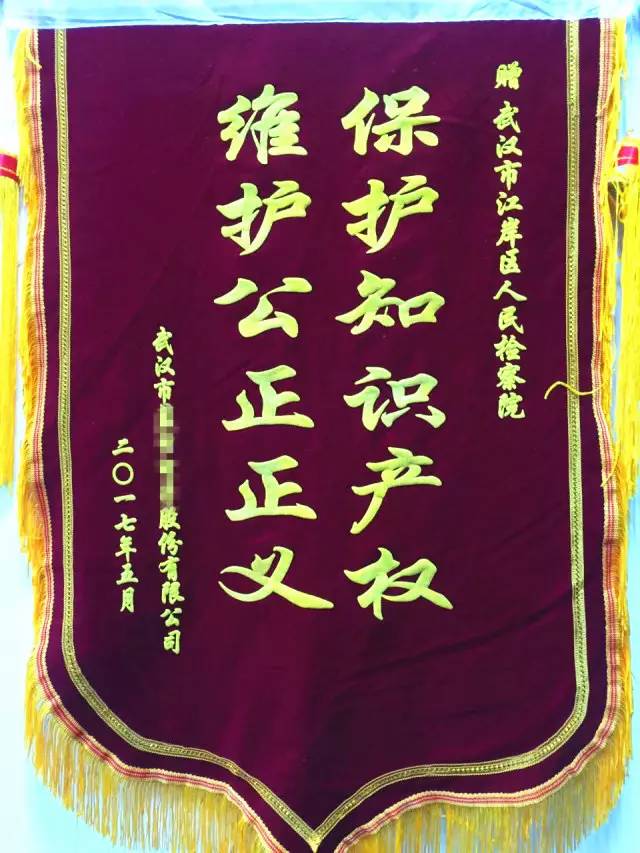 赠 武汉市江岸区人民检察院
保护知识产权
维护公正正义
武汉市 股份有限公司
二〇一七年五月